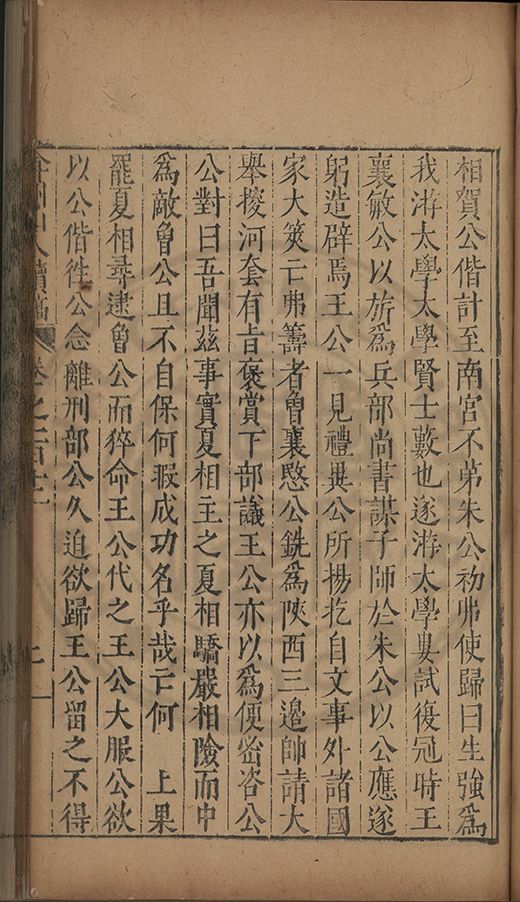 相賀公偕計至南宮不第朱公初弗使歸曰生強為
我游太學太學賢士藪也遂游太學婁試復冠時王
襄敏公以旂為兵部尚書謀子師於朱公以公應遂
躬造辟焉王公一見禮異公所揚扢自文事外諸國
家大筴亡弗籌者曾襄愍公銑為陝西三邉帥請大
舉搜河套有旨褒賞下部議王公亦以為便密咨公
公對曰吾聞茲事實夏相主之夏相驕嚴相險而中
為敵曾公且不自保何暇成功名乎哉亡何 上果
罷夏相尋逮曾公而猝命王公代之王公大服公欲
以公偕徃公念離刑部公久追欲歸王公留之不得
弇州山人續稿 卷之一百十二